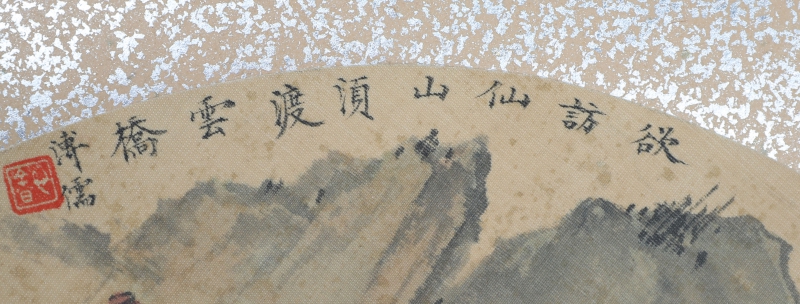 欲訪仙山須渡雲橋
溥儒